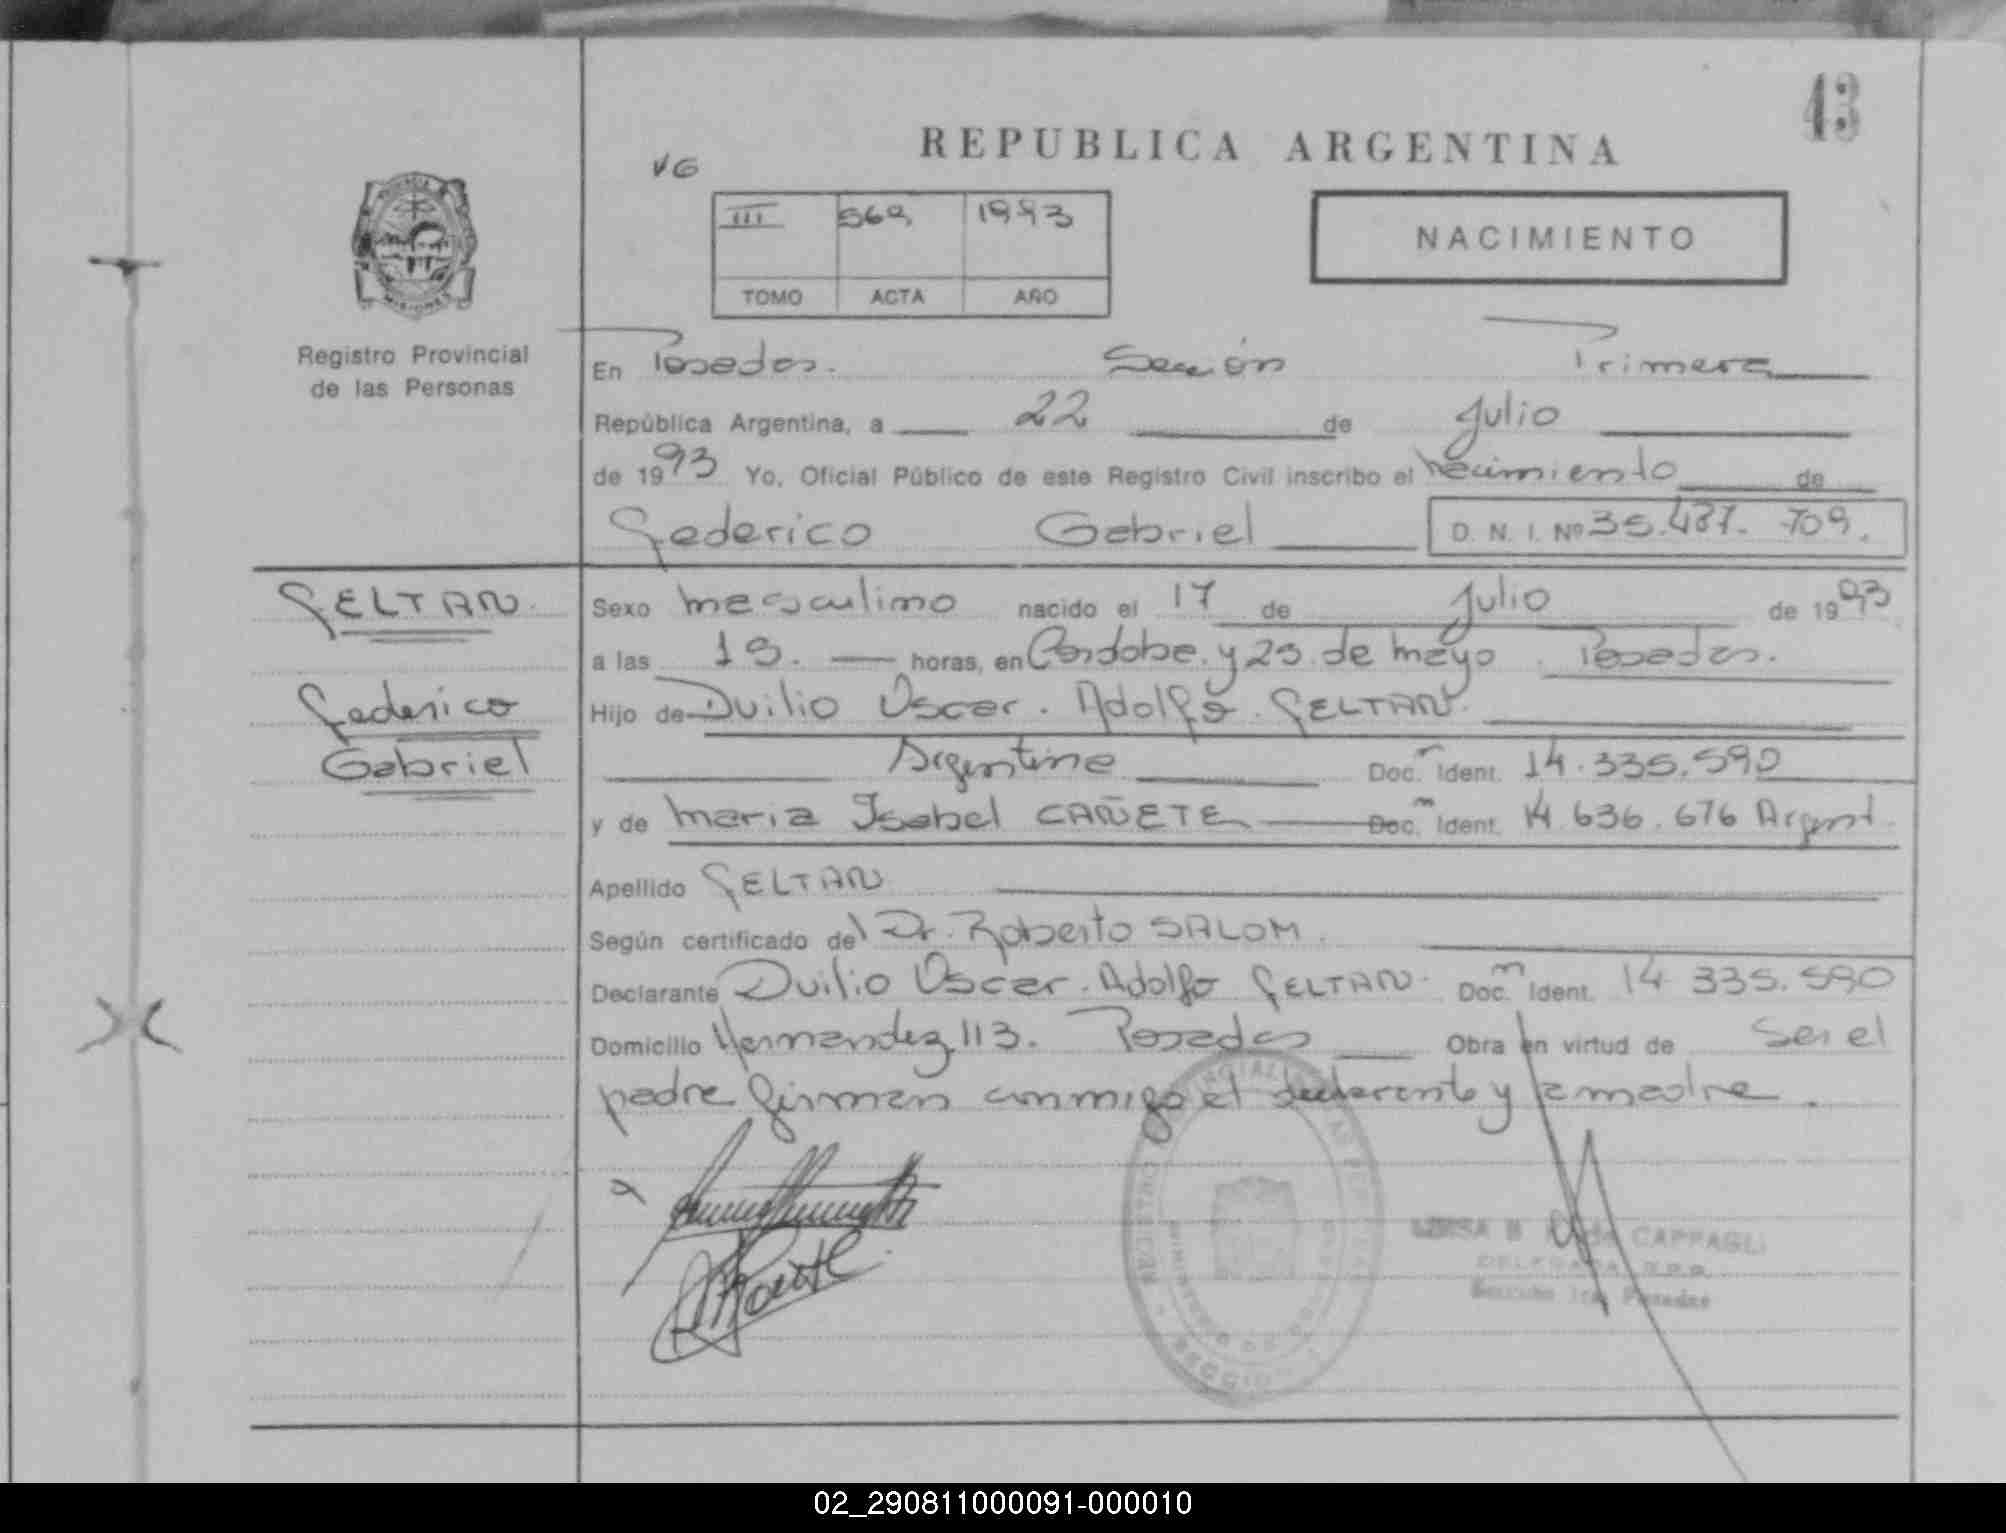 43
REPUBLICA ARGENTINA
VG
III 569 1993
TOMO ACTA AÑO
NACIMIENTO
Registro Provincial
de las Personas
En Posadas. Sección Primera
República Argentina, a 22 de Julio
de 1993 Yo, Oficial Público de este Registro Civil inscribo el nacimiento de
Federico Gabriel D. N. I. Nº 35.487.709.
FELTAN.
Federico
Gabriel
Sexo masculino nacido el 17 de Julio de 1993
a las 19. horas, en Cordoba y 25 de mayo. Posadas.
Hijo de Duilio Oscar. Adolfo. FELTAN.
Argentina Doc. Ident. 14.335.590
y de Maria Isabel CAÑETE Doc. Ident. 14.636.676 Argent.
Apellido FELTAN
Según certificado del Dr. Roberto SALOM.
Declarante Duilio Oscar. Adolfo FELTAN. Doc. Ident. 14.335.590
Domicilio Hernandez 113. Posadas Obra en virtud de Ser el
padre firman conmigo el declarante y la madre.
CAPPAGLI
DELEGADA R.P.P.
Sección 1ra Posadas
02_290811000091-000010